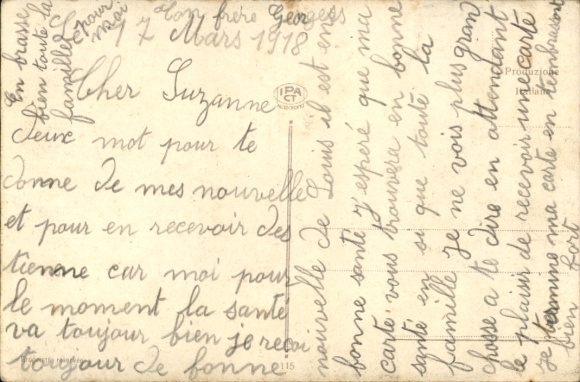 17 Mars 1918
Cher Suzanne
deux mot pour te
donne de mes nouvelle
et pour en recevoir des
tienne car moi pour
le moment la santé
va toujour bien je recoi
toujour de bonne
nouvelle de Louis il est en
bonne santé j'espéré que ma
carte vous trouvera en bonne
santé en si que toute la
famille je ne vois plus gran
chosse a te dire en attendant
le plaisir de recevoir une carte
je termine ma carte en tembrassant
bien fort
Ton frére Georges
En brasse
bien toute la
famille pour
moi
IPA
CT
Produzione
Italiana
115